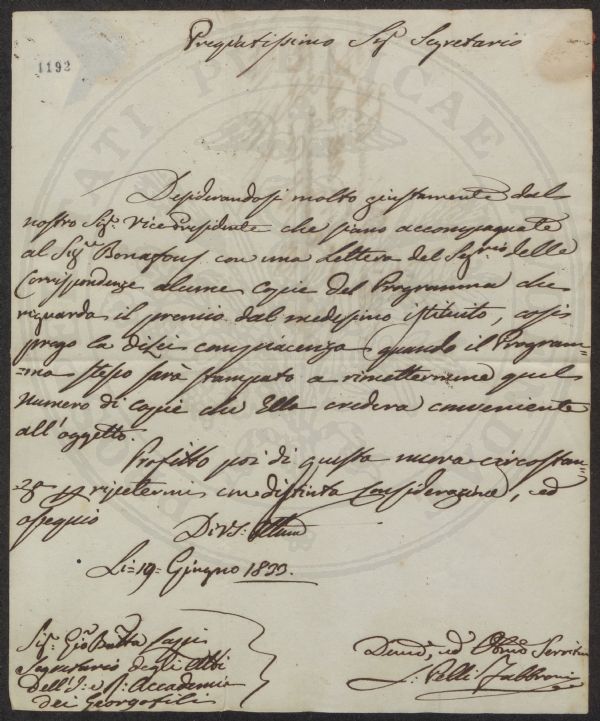 1192
Pregiatissimo Sig.r Segretario
Desiderandosi molto giustamente dal
nostro Sig.r Vice Presidente che siano accompagnate
al Sig.r Bonafous con una Lettera del Seg.rio delle
Corrispondenze alcune copie del Programma che
riguarda il premio dal medesimo istituito, così
prego la di Lei compiacenza quando il Program=
=ma stesso sarà stampato a rimettermene quel
numero di copie che Ella crederà conveniente
all'oggetto.
Profitto poi di questa nuova circostan=
za per ripetermi con distinta Considerazione, ed
ossequio
Di V.S. Ill.ma
Li= 19= Giugno 1833.
Sig.r Gio Batta Lapi
Segretario degli Atti
Dell'I: e R: Accademia
dei Georgofili
Dev.mo, ed Obb.mo Servitore
Pelli Fabbroni